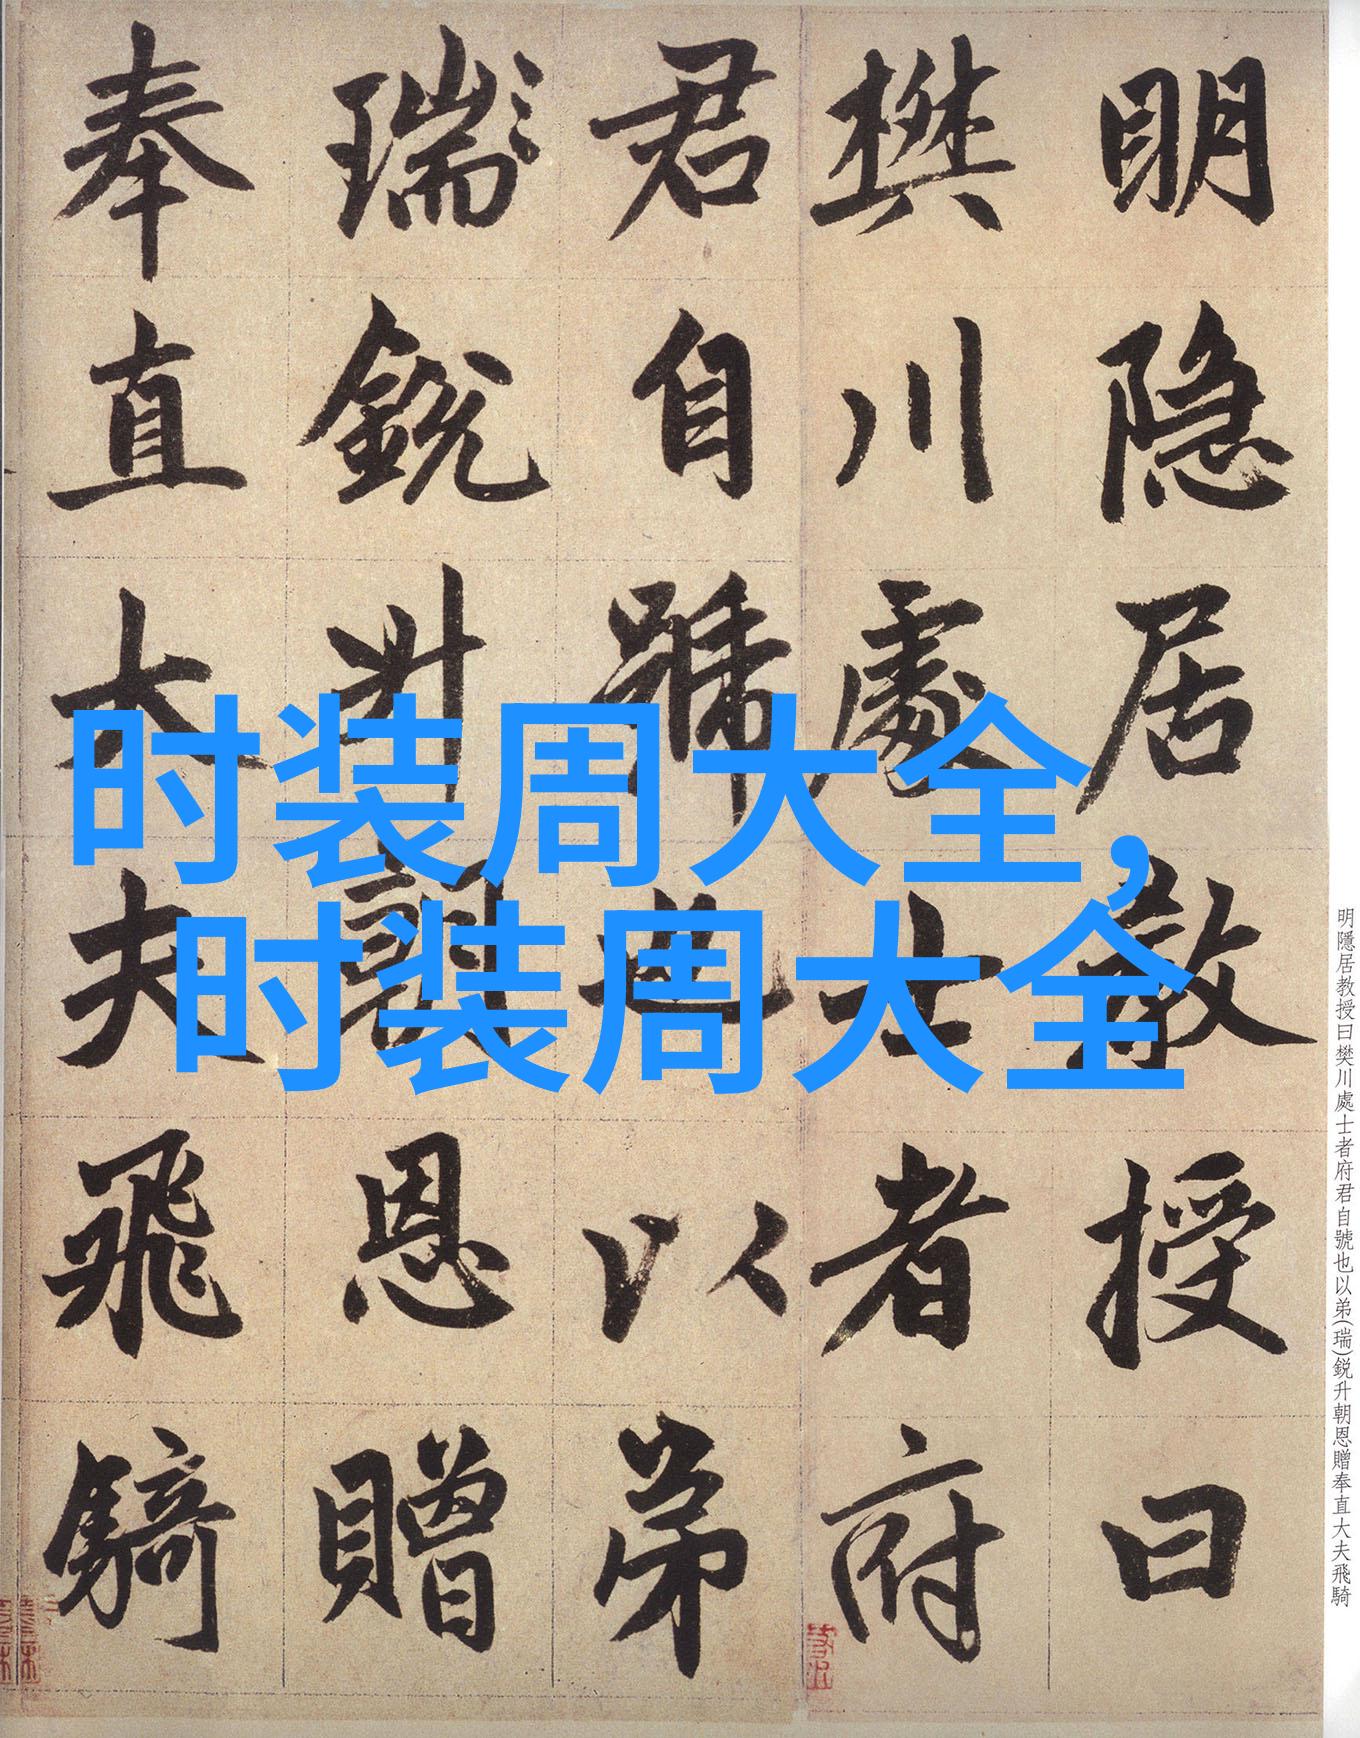 明隐居教授曰
樊川處士者府
君自號也以弟
瑞銳升朝恩贈
奉直大夫飛騎
时装周大全，
时装周大全
明隱居教授曰樊川處士者府君自號也以弟(瑞)銳升朝恩贈奉直大夫飛騎